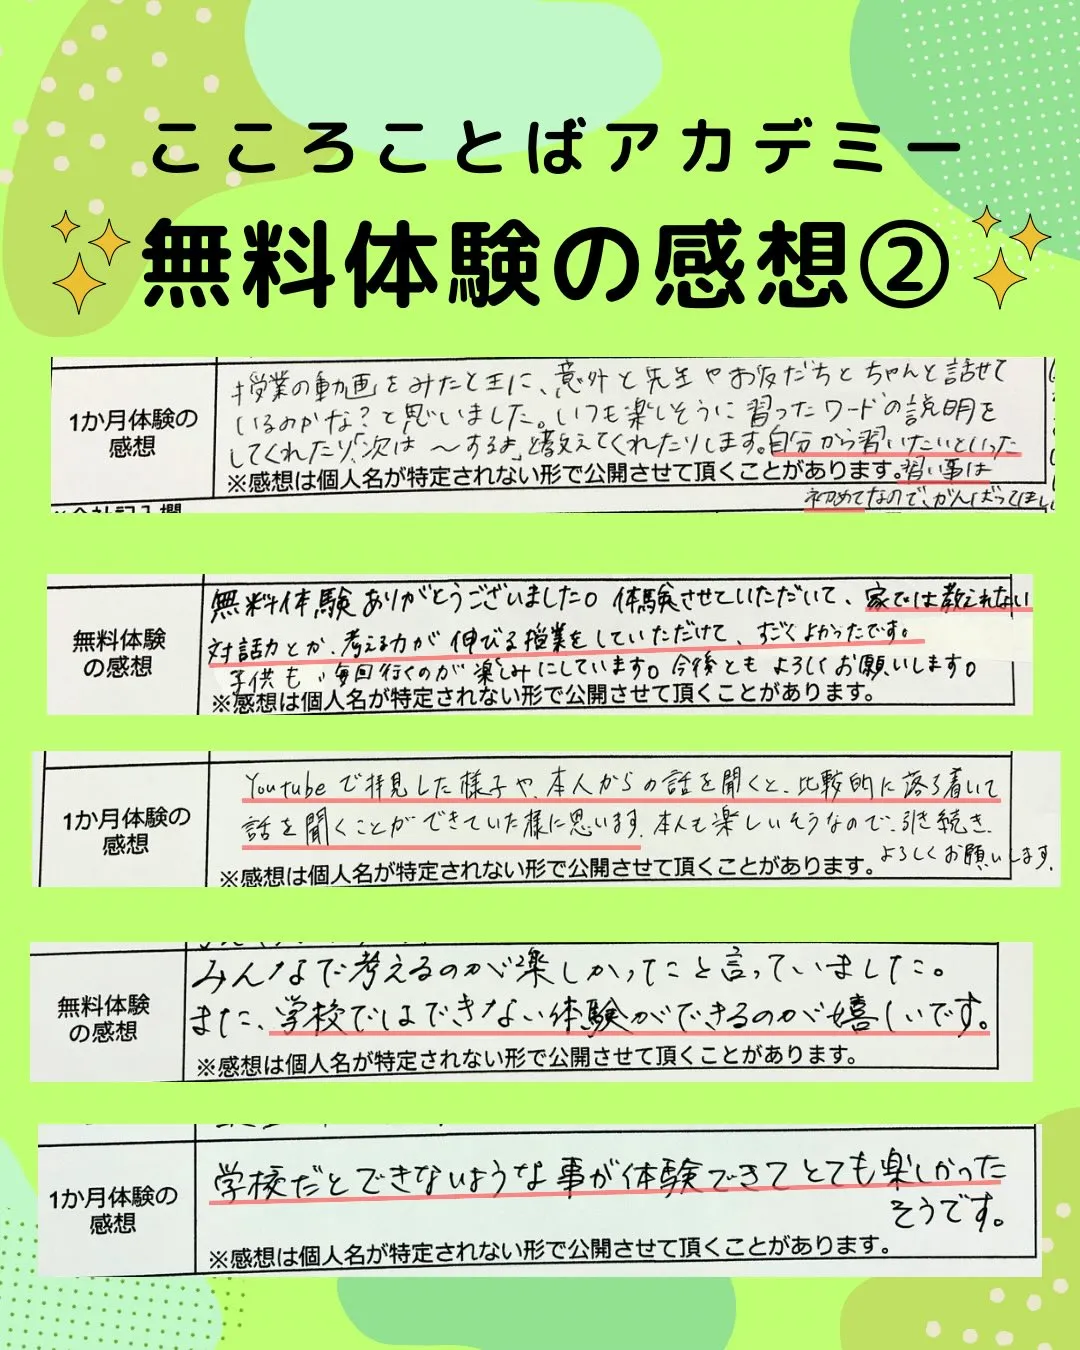 こころことばアカデミー
無料体験の感想②
1か月体験の
感想
授業の動画をみたときに、意外と先生やお友だちとちゃんと話せて
いるのかな?と思いました。いつも楽しそうに習ったワードの説明を
してくれたり、「次は〜するよ」と教えてくれたりします。自分から習いたいといった
※感想は個人名が特定されない形で公開させて頂くことがあります。習い事は
初めてなので、がんばってほし
無料体験
の感想
無料体験ありがとうございました。体験させていただいて、家では教えれない
対話力とか、考える力が伸びる授業をしていただけて、すごくよかったです。
子供も、毎回行くのが楽しみにしています。今後ともよろしくお願いします。
※感想は個人名が特定されない形で公開させて頂くことがあります。
1か月体験の
感想
Youtubeで拝見した様子や、本人からの話を聞くと、比較的に落ち着いて
話を聞くことができていた様に思います。本人も楽しいそうなので、引き続き、
よろしくお願いします。
※感想は個人名が特定されない形で公開させて頂くことがあります。
無料体験
の感想
みんなで考えるのが楽しかったこと言っていました。
また、学校ではできない体験ができるのが嬉しいです。
※感想は個人名が特定されない形で公開させて頂くことがあります。
1か月体験の
感想
学校だとできないような事が体験できてとても楽しかった
そうです。
※感想は個人名が特定されない形で公開させて頂くことがあります。